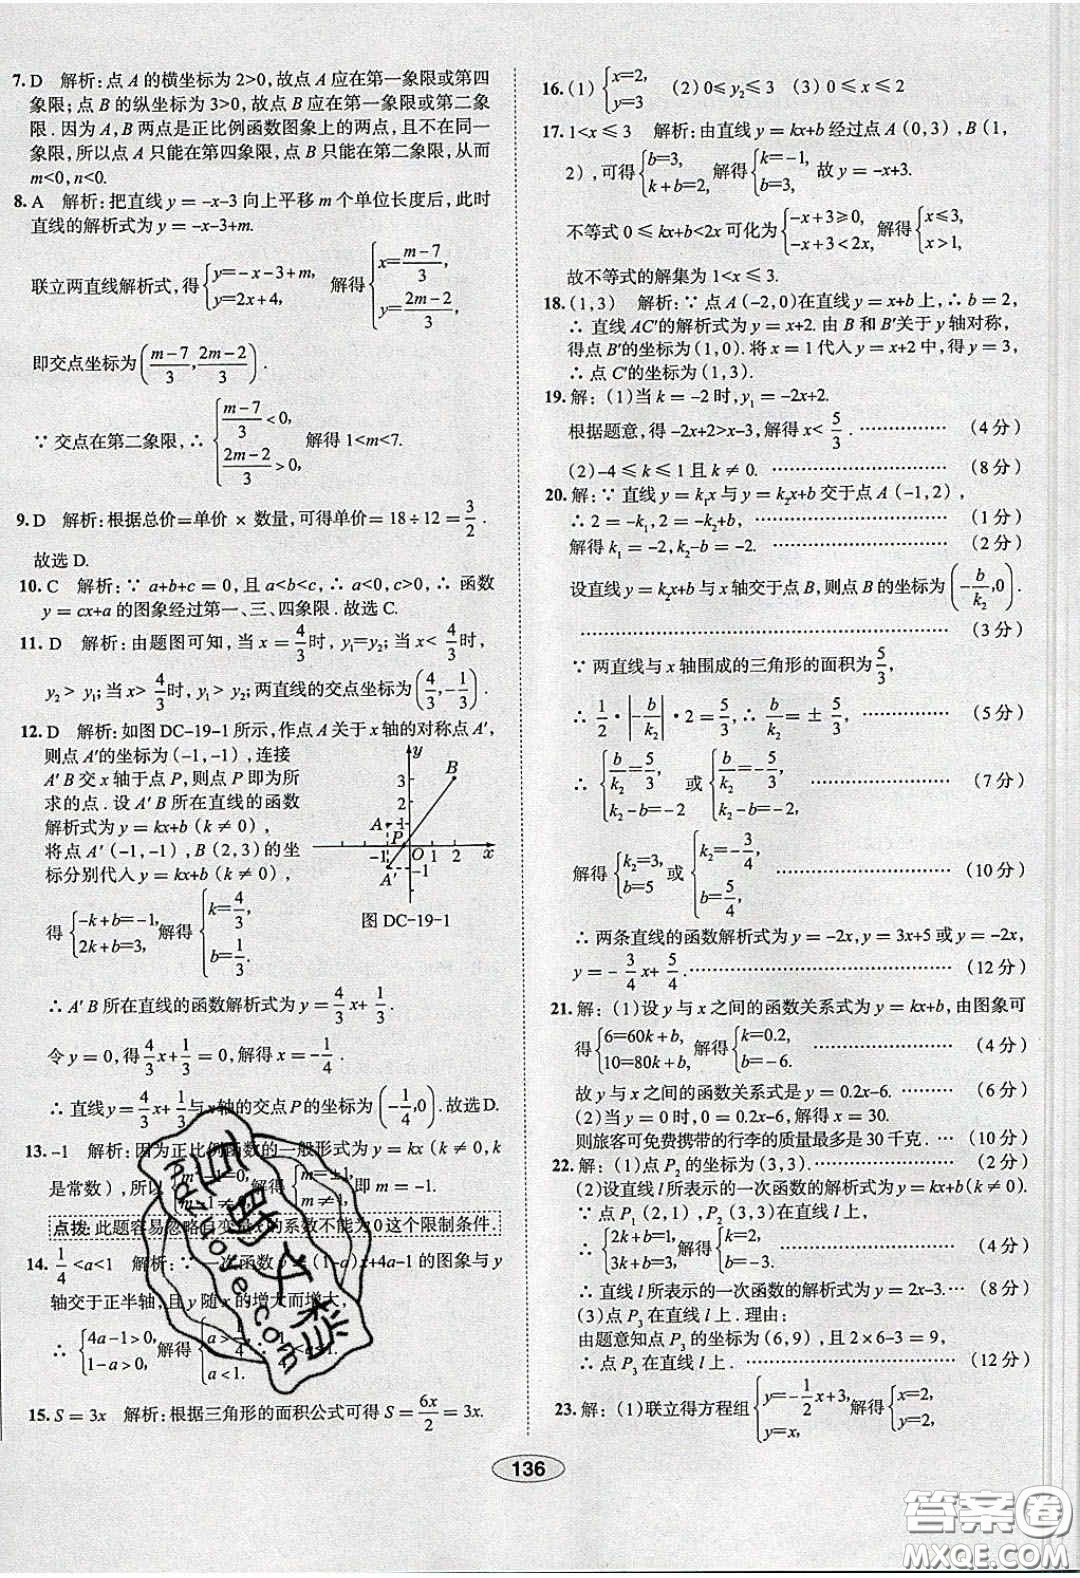 7. D 解析:点 A 的横坐标为 2>0,故点 A 应在第一象限或第四
象限;点 B 的纵坐标为 3>0,故点 B 应在第一象限或第二象
限.因为 A,B 两点是正比例函数图象上的两点,且不在同一
象限,所以点 A 只能在第四象限,点 B 只能在第二象限,从而
m<0,n<0.
8. A 解析:把直线 y=-x-3 向上平移 m 个单位长度后,此时
直线的解析式为 y=-x-3+m.
联立两直线解析式,得{y=-x-3+m, y=2x+4, 解得{x=(m-7)/3, y=(2m-2)/3,
即交点坐标为((m-7)/3,(2m-2)/3).
∵ 交点在第二象限,∴{(m-7)/3<0, (2m-2)/3>0, 解得 1<m<7.
9. D 解析:根据总价=单价×数量,可得单价=18÷12=3/2.
故选 D.
10. C 解析:∵ a+b+c=0,且 a<b<c,∴ a<0,c>0,∴ 函数
y=cx+a 的图象经过第一、三、四象限.故选 C.
11. D 解析:由题图可知,当 x=4/3 时,y₁=y₂;当 x<4/3 时,
y₂>y₁;当 x>4/3 时,y₁>y₂;两直线的交点坐标为(4/3,-1/3).
12. D 解析:如图 DC-19-1 所示,作点 A 关于 x 轴的对称点 A′,
则点 A′的坐标为(-1,-1),连接
A′B 交 x 轴于点 P,则点 P 即为所
求的点.设 A′B 所在直线的函数
解析式为 y=kx+b(k≠0),
将点 A′(-1,-1),B(2,3)的坐
标分别代入 y=kx+b(k≠0),
得{-k+b=-1, 2k+b=3, 解得{k=4/3, b=1/3.
y
B
3
2
A
1
P
-1
O
1
2
x
A′
-1
图 DC-19-1
∴ A′B 所在直线的函数解析式为 y=4/3x+1/3.
令 y=0,得4/3x+1/3=0,解得 x=-1/4.
∴ 直线 y=4/3x+1/3与x轴的交点 P 的坐标为(-1/4,0).故选 D.
13. -1 解析:因为正比例函数的一般形式为 y=kx(k≠0,k
是常数),所以 解得 即 m=-1.
点拨:此题容易忽略自变量x的系数不能为 0 这个限制条件.
14. 1/4<a<1 解析:∵ 一次函数 y=(1-a)x+4a-1 的图象与 y
轴交于正半轴,且 y 随 x 的增大而增大,
∴{4a-1>0, 1-a>0, 解得{a>1/4, a<1. ∴ 1/4<a<1.
15. S=3x 解析:根据三角形的面积公式可得 S=6x/2=3x.
16. (1){x=2, y=3 (2)0≤y₂≤3 (3)0≤x≤2
17. 1<x≤3 解析:由直线 y=kx+b 经过点 A(0,3),B(1,
2),可得{b=3, k+b=2, 解得{k=-1, b=3, 故 y=-x+3.
不等式 0≤kx+b<2x 可化为{-x+3≥0, -x+3<2x, 解得{x≤3, x>1,
故不等式的解集为 1<x≤3.
18. (1,3) 解析:∵ 点 A(-2,0)在直线 y=x+b 上,∴ b=2,
∴ 直线 AC′的解析式为 y=x+2.由 B 和 B′关于 y 轴对称,
得点 B′的坐标为(1,0).将 x=1 代入 y=x+2 中,得 y=3,
∴ 点 C′的坐标为(1,3).
19. 解:(1)当 k=-2 时,y₁=-2x+2.
根据题意,得-2x+2>x-3,解得 x<5/3. ……………… (4 分)
(2)-4≤k≤1 且 k≠0. ……………… (8 分)
20. 解:∵ 直线 y=k₁x 与 y=k₂x+b 交于点 A(-1,2),
∴ 2=-k₁,2=-k₂+b, ……………… (1 分)
解得 k₁=-2,k₂-b=-2. ……………… (2 分)
设直线 y=k₂x+b 与 x 轴交于点 B,则点 B 的坐标为(-b/k₂,0).
……………… (3 分)
∵ 两直线与 x 轴围成的三角形的面积为5/3,
∴ 1/2·|-b/k₂|·2=5/3,∴ b/k₂=±5/3, ……………… (5 分)
∴{b/k₂=5/3, k₂-b=-2 或{b/k₂=-5/3, k₂-b=-2, ……………… (7 分)
解得{k₂=3, b=5 或{k₂=-3/4, b=5/4. ……………… (10 分)
∴ 两条直线的函数解析式为 y=-2x,y=3x+5 或 y=-2x,
y=-3/4x+5/4. ……………… (12 分)
21. 解:(1)设 y 与 x 之间的函数关系式为 y=kx+b,由图象可
得{6=60k+b, 10=80k+b, 解得{k=0.2, b=-6. ……………… (4 分)
故 y 与 x 之间的函数关系式是 y=0.2x-6. ……… (6 分)
(2)当 y=0 时,0=0.2x-6,解得 x=30.
则旅客可免费携带的行李的质量最多是 30 千克. … (10 分)
22. 解:(1)点 P₂ 的坐标为(3,3). ……………… (2 分)
(2)设直线 l 所表示的一次函数的解析式为 y=kx+b(k≠0).
∵ 点 P₁(2,1),P₂(3,3)在直线 l 上,
∴{2k+b=1, 3k+b=3, 解得{k=2, b=-3. ……………… (4 分)
∴ 直线 l 所表示的一次函数的解析式为 y=2x-3. … (8 分)
(3)点 P₃ 在直线 l 上.理由:
由题意知点 P₃ 的坐标为(6,9),且 2×6-3=9,
∴ 点 P₃ 在直线 l 上. ……………… (12 分)
23. 解:(1)联立得方程组{y=-1/2x+3, y=x, 解得{x=2, y=2,
136
答案圈
MXQE.COM